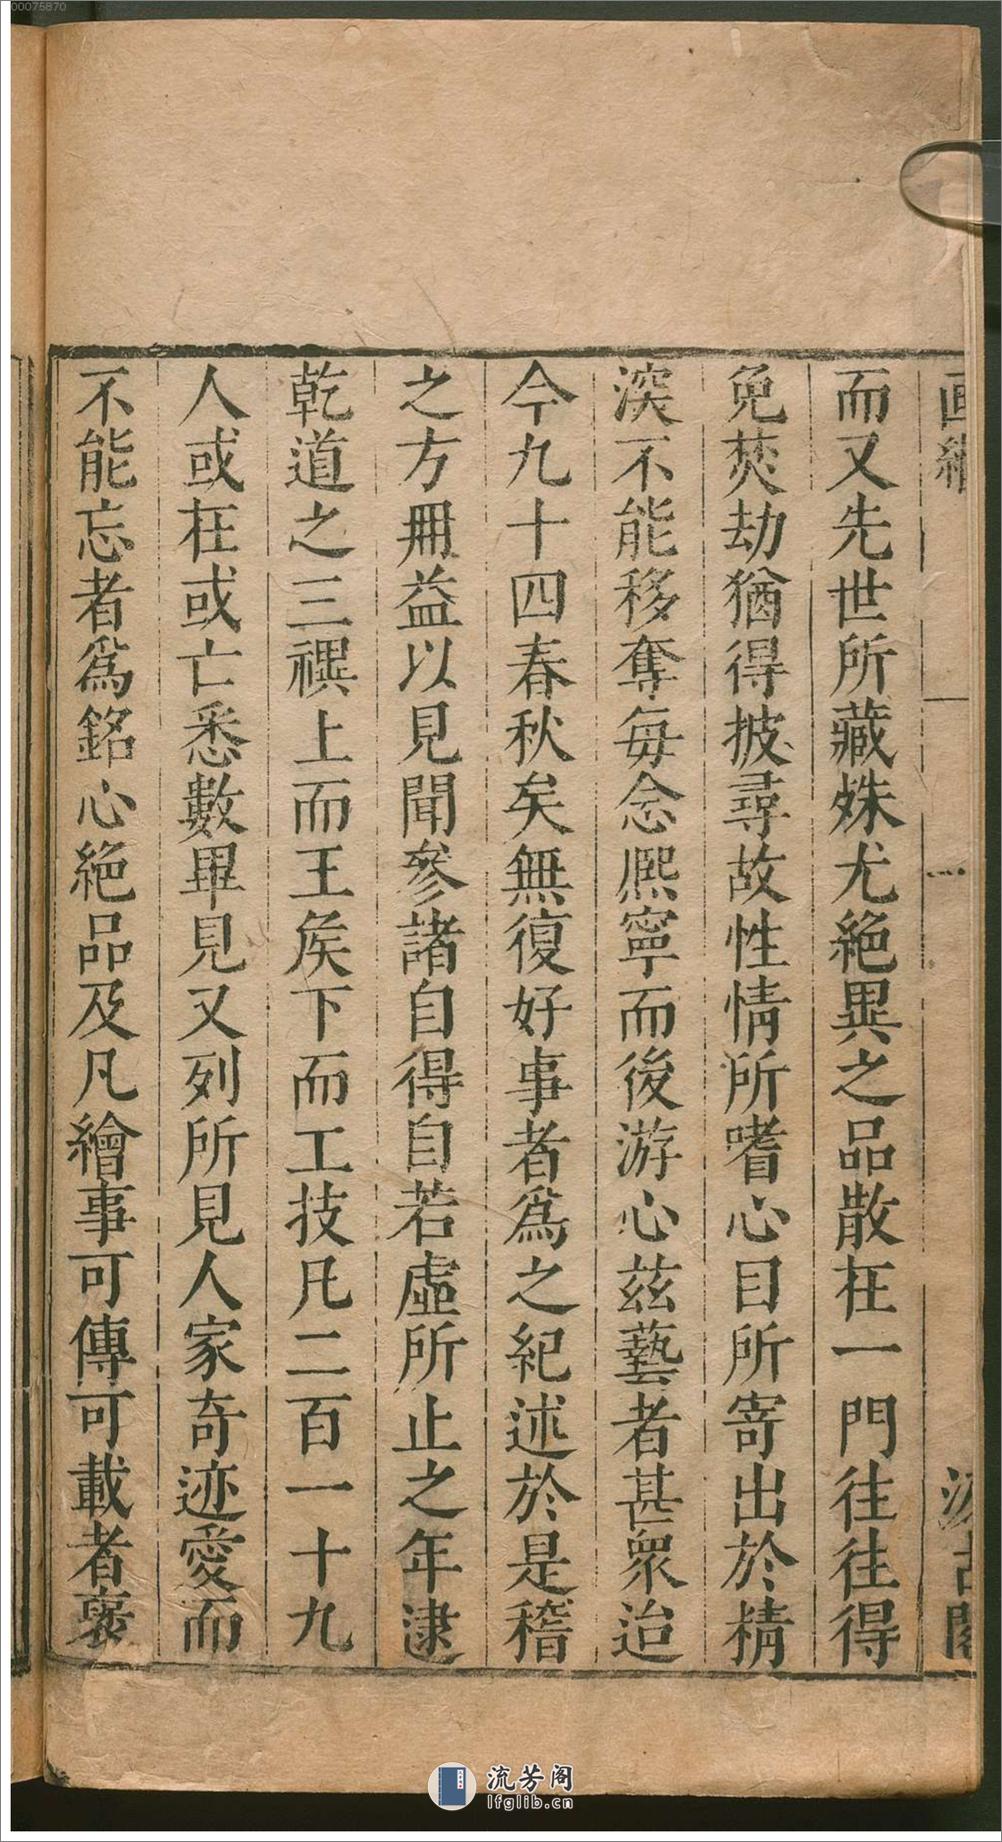 00075870
而又先世所藏姝尤絕異之品散在一門往往得
免焚劫猶得披尋故性情所嗜心目所寄出於精
深不能移奪每念熈寧而後游心茲藝者甚眾迨
今九十四春秋矣無復好事者爲之紀述於是稽
之方冊益以見聞參諸自得自若虛所止之年逮
乾道之三禩上而王矦下而工技凡二百一十九
人或在或亡悉數畢見又列所見人家奇迹愛而
不能忘者爲銘心絕品及凡繪事可傳可載者裒
流芳阁
lfglib.cn